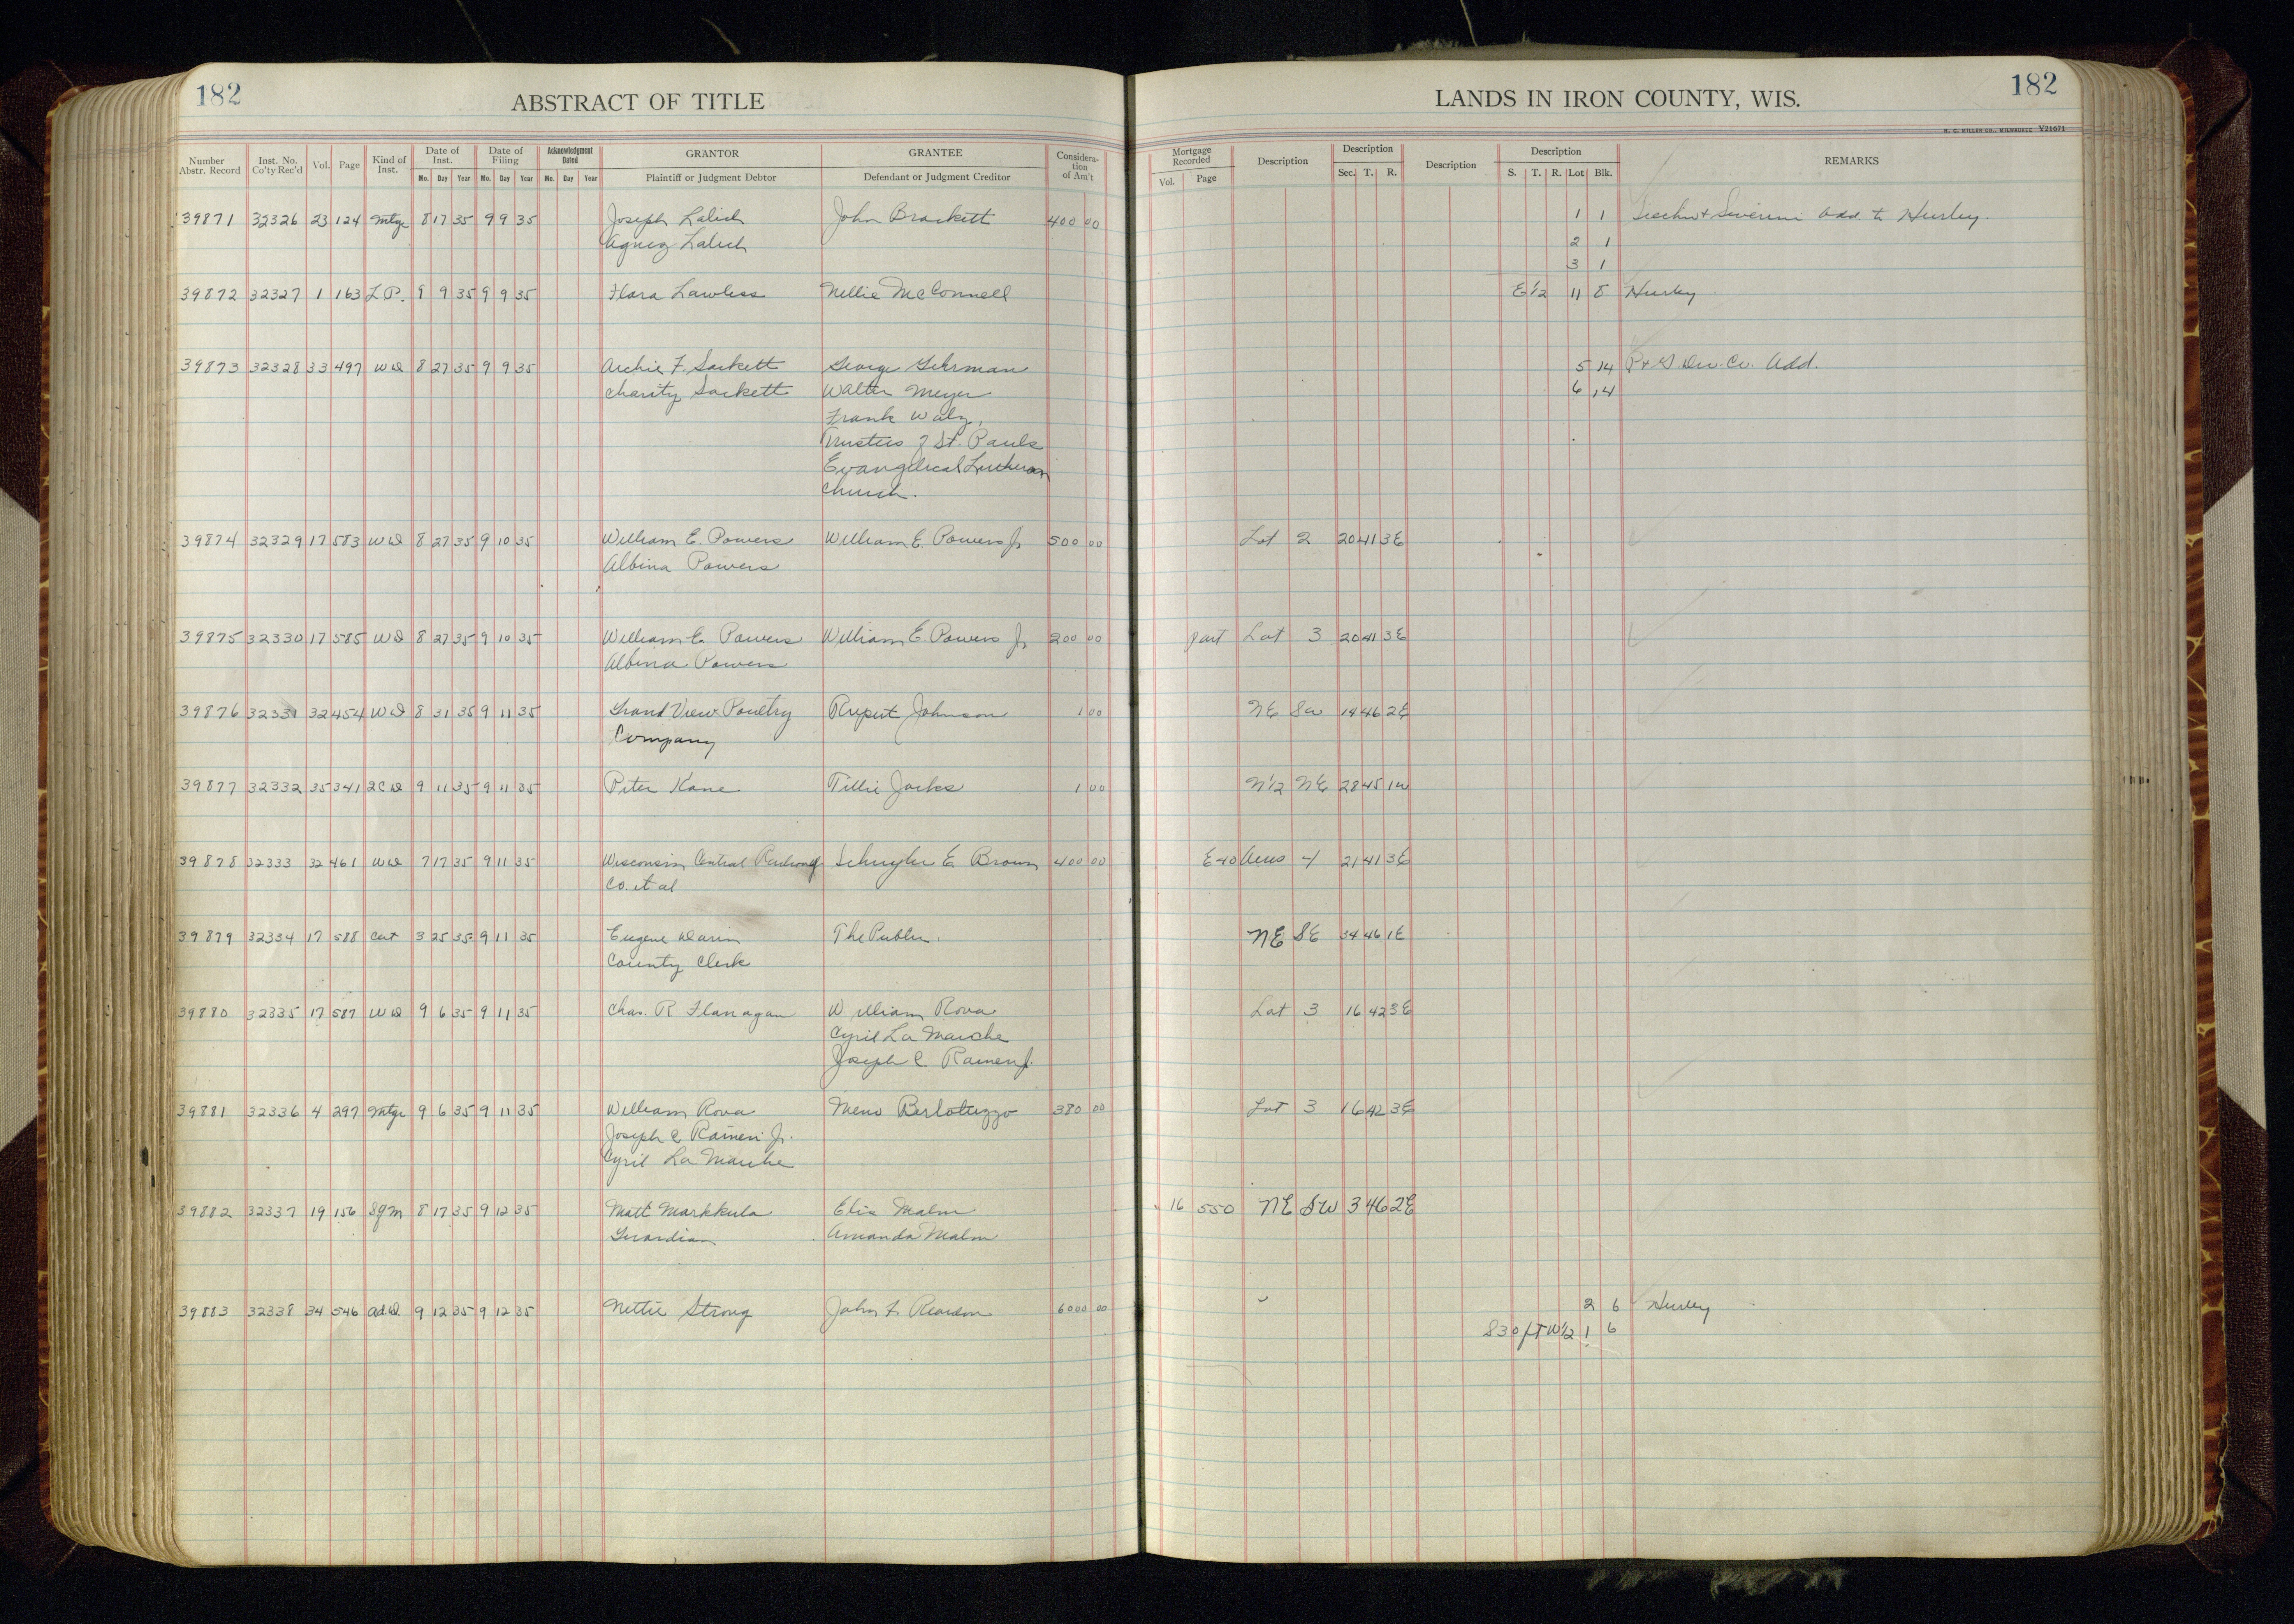 182
ABSTRACT OF TITLE
LANDS IN IRON COUNTY, WIS.
182
H. C. MILLER CO., MILWAUKEE V21671
Number Abstr. Record | Inst. No. Co'ty Rec'd | Vol. | Page | Kind of Inst. | Date of Inst. Mo. Day Year | Date of Filing Mo. Day Year | Acknowledgment Dated Mo. Day Year | GRANTOR Plaintiff or Judgment Debtor | GRANTEE Defendant or Judgment Creditor | Consideration of Am't | Mortgage Recorded Vol. Page | Description | Description Sec. T. R. | Description | Description S. T. R. Lot Blk. | REMARKS
39871 32326 23 124 Mtge 8 17 35 9 9 35 Joseph Lalich John Brackett 400 00 1 1 Add. to Hurley.
Agnez Lalich 2 1
3 1
39872 32327 1 163 L.P. 9 9 35 9 9 35 Flora Lawless Nellie McConnell E 1/2 11 8 Hurley
39873 32328 33 497 WD 8 27 35 9 9 35 Archie F. Sackett George Gehrman 5 14 P & G Dev. Co. Add.
Charity Sackett Walter Meyer 6 14
Frank Walz,
Trustees of St. Pauls
Evangelical Lutheran
Church.
39874 32329 17 583 WD 8 27 35 9 10 35 William E. Powers William E. Powers Jr 500 00 Lot 2 20 41 3E
Albina Powers
39875 32330 17 585 WD 8 27 35 9 10 35 William E. Powers William E. Powers Jr 200 00 part Lot 3 20 41 3E
Albina Powers
39876 32331 32 454 WD 8 31 35 9 11 35 Grand View Poultry Rupert Johnson 1 00 NE SW 14 46 2E
Company
39877 32332 35 341 2CD 9 11 35 9 11 35 Peter Kane Tillie Jacks 1 00 N1/2 NE 28 45 1W
39878 32333 32 461 WD 7 17 35 9 11 35 Wisconsin Central Railroad Schuyler E. Brown 400 00 E 40 Acres 4 21 41 3E
Co. et al
39879 32334 17 588 Cert 3 25 35 9 11 35 Eugene Darin The Public. NE SE 34 46 1E
County Clerk
39880 32335 17 587 WD 9 6 35 9 11 35 Chas. R Flanagan William Rova Lot 3 16 42 3E
Cyril La Marche
Joseph C. Raineri Jr.
39881 32336 4 297 Mtge 9 6 35 9 11 35 William Rova Meno Berlotuzzo 380 00 Lot 3 16 42 3E
Joseph C Raineri Jr.
Cyril La Marche
39882 32337 19 156 SgM 8 17 35 9 12 35 Matt Markkula Elis Malm 16 550 NE SW 3 46 2E
Guardian Amanda Malm
39883 32338 34 546 Ad.D. 9 12 35 9 12 35 Nettie Strong John F. Reardon 6000 00 2 6 Hurley
S 30 ft W 1/2 1 6